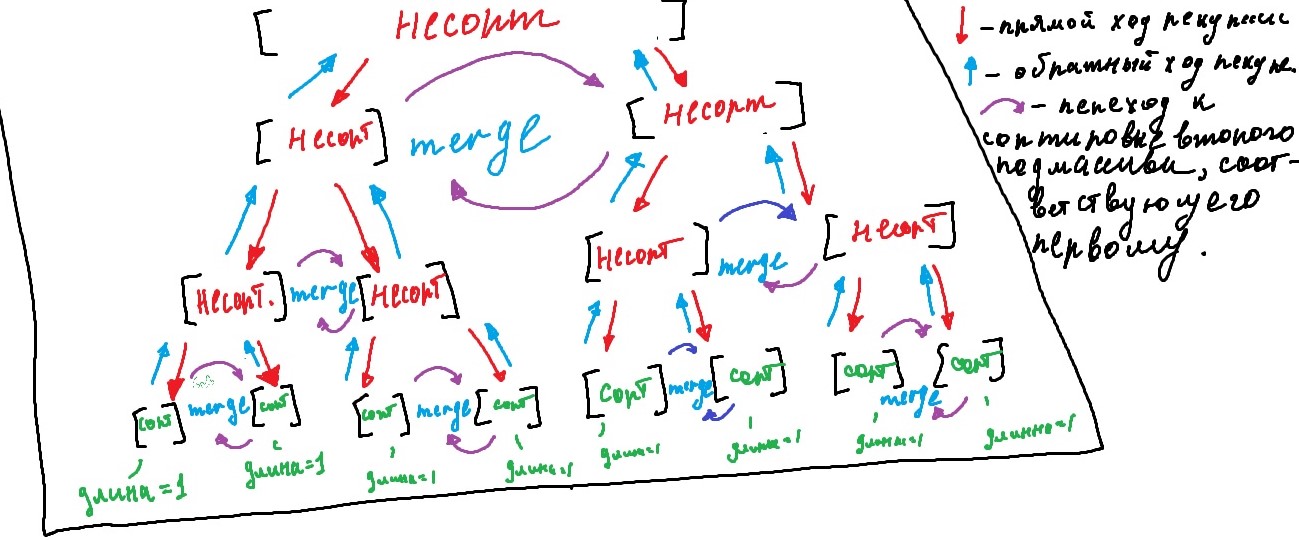 Несорт
Несорт
merge
Несорт
Несорт.
merge
Несорт
Несорт
merge
Несорт
сорт
merge
сорт
сорт
merge
сорт
сорт
merge
сорт
сорт
merge
сорт
длина=1
длина=1
длина=1
длина=1
длина=1
длина=1
длина=1
длинна=1
- прямой ход рекурсии
- обратный ход рекурс.
- переход к
сортировке второго
подмассива, соот-
ветствующего
первому.